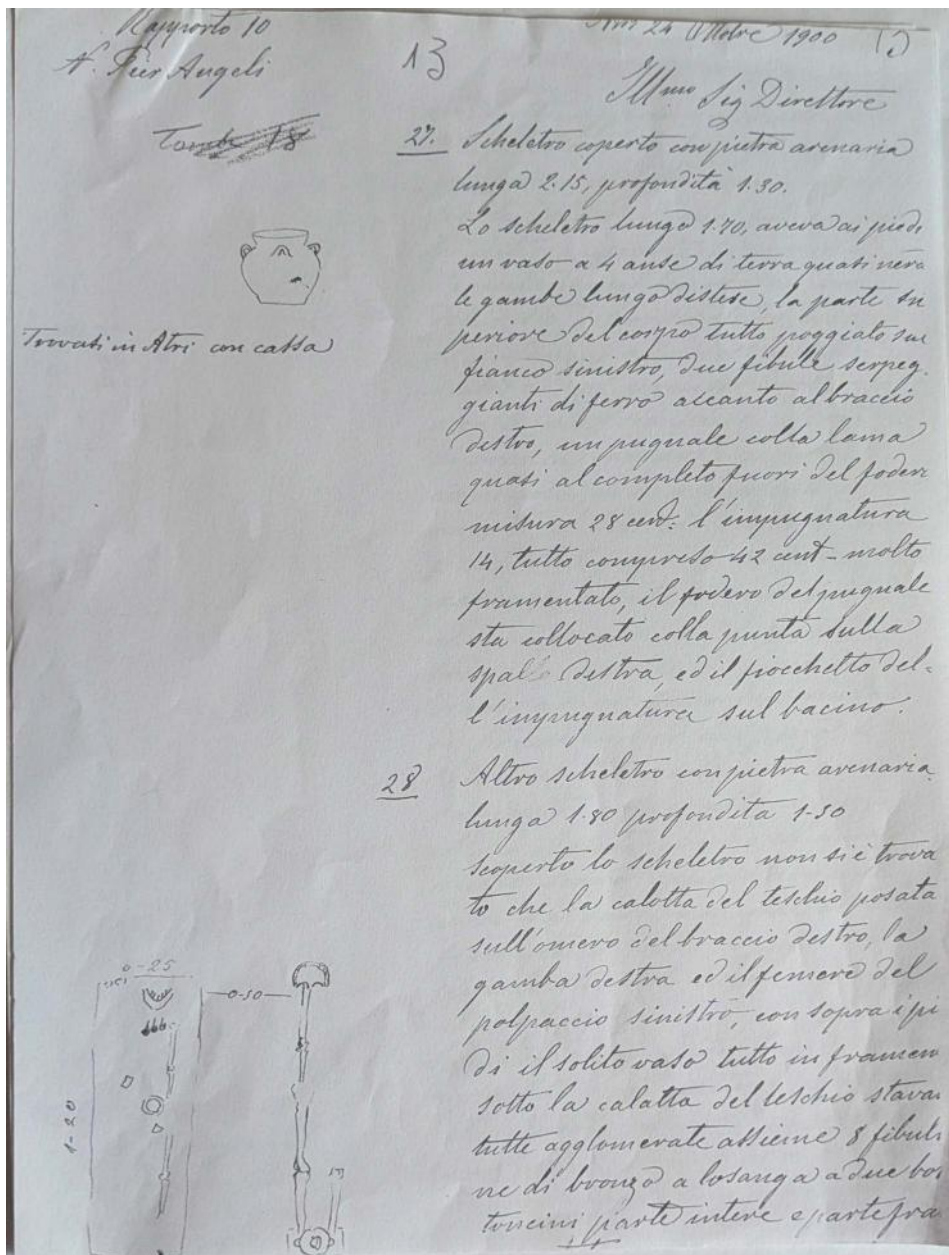 Rapporto 10
Atri 24 Ottobre 1900
N. Pier Angeli
13
Ill.mo Sig Direttore
Tomba 18
27. Scheletro coperto con pietra arenaria
lunga 2.15, profondità 1.30.
Lo scheletro lungo 1.70, aveva ai piedi
un vaso a 4 anse di terra quasi nera
le gambe lungo distese, la parte su
periore del corpo tutto poggiato sul
fianco sinistro, due fibule serpeg.
gianti di ferro accanto al braccio
destro, un pugnale colla lama
quasi al completo fuori del fodero
misura 28 cent: l'impugnatura
14, tutto compreso 42 cent - molto
framentato, il fodero del pugnale
sta collocato colla punta sulla
spalla destra, ed il fiocchetto del=
l'impugnatura sul bacino.
Trovasi in Atri con cassa
28 Altro scheletro con pietra arenaria
lunga 1.80 profondita 1-30
scoperto lo scheletro non si è trova
to che la calotta del teschio posata
sull'omero del braccio destro, la
gamba destra ed il femere del
polpaccio sinistro, con sopra i pi
di il solito vaso tutto in framen
sotto la calatta del teschio stavan
tutte agglomerate assieme 8 fibuli
ne di bronzo a losanga a due bot
toncini parte intere e parte fra
0-25
0-50
1-20